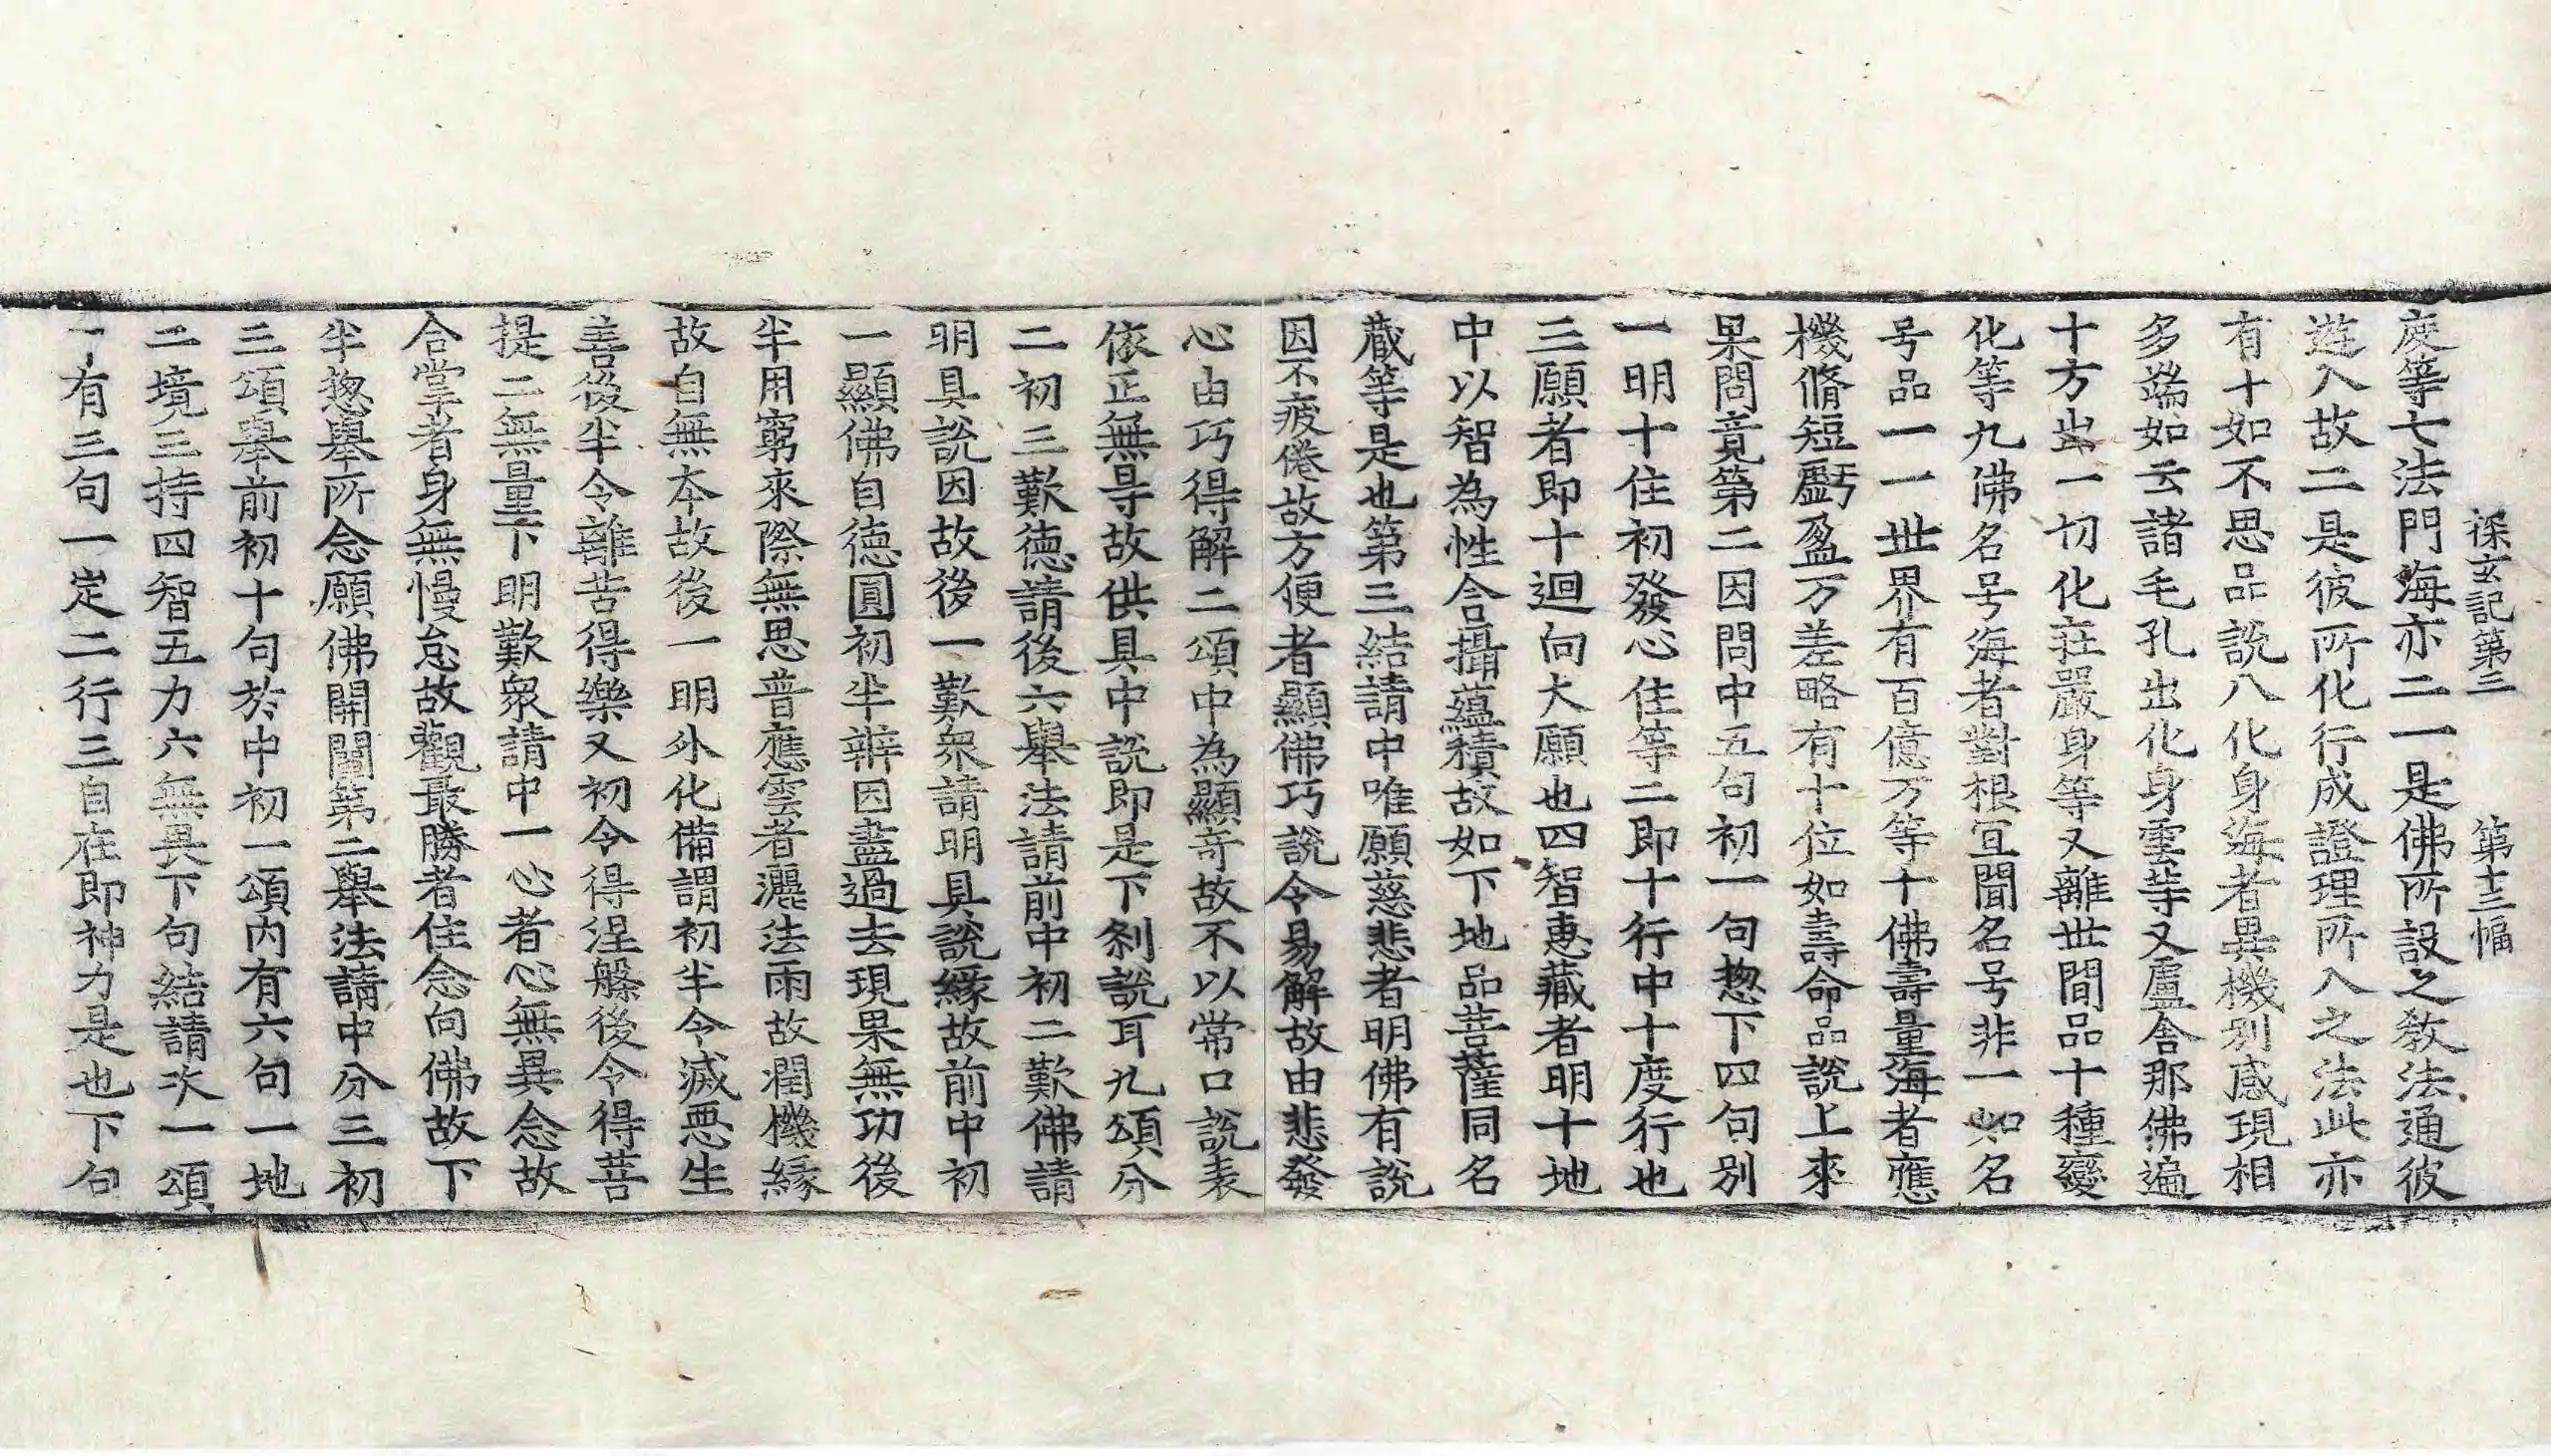 探玄記第三 第十三幅
度等七法門海亦二一是佛所設之教法通彼
遊入故二是彼所化行成證理所入之法此亦
有十如不思品說八化身海者異機別感現相
多端如云諸毛孔出化身雲等又盧舍那佛遍
十方出一切化莊嚴身等又離世間品十種變
化等九佛名号海者對根宜聞名号非一如名
号品一一世界有百億万等十佛壽量海者應
機脩短虧盈万差略有十位如壽命品說上來
果問竟第二因問中五句初一句惣下四句別
一明十住初發心住等二即十行中十度行也
三願者即十迴向大願也四智惠藏者明十地
中以智為性含攝蘊積故如下地品菩薩同名
藏等是也第三結請中唯願慈悲者明佛有說
因不疲倦故方便者顯佛巧說令易解故由悲發
心由巧得解二頌中為顯奇故不以常口說表
依正無㝵故供具中說即是下剎說耳九頌分
二初三歎德請後六舉法請前中初二歎佛請
明具說因故後一歎衆請明具說緣故前中初
一顯佛自德圓初半辨因盡過去現果無功後
半用窮來際無思普應雲者灑法雨故潤機緣
故自無本故後一明外化備謂初半令滅惡生
善後半令離苦得樂又初令得涅槃後令得菩
提二無量下明歎衆請中一心者心無異念故
合掌者身無慢怠故觀最勝者住念向佛故下
半惣舉所念願佛開闡第二舉法請中分三初
三頌舉前初十句於中初一頌內有六句一地
二境三持四智五力六無畏下句結請次一頌
一有三句一定二行三自在即神力是也下句